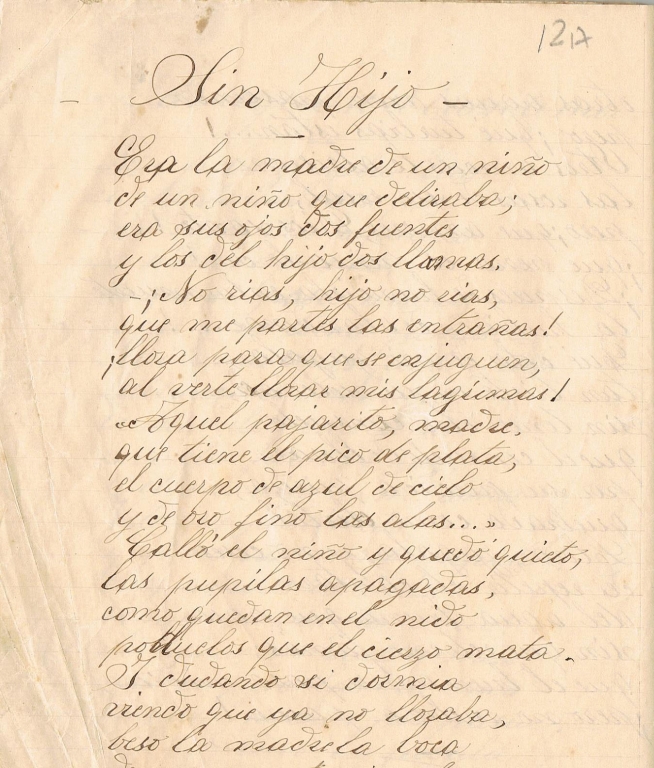 12A
— Sin Hijo —
Era la madre de un niño
de un niño que deliraba;
era sus ojos dos fuentes
y los del hijo dos llamas.
—¡No rias, hijo no rias,
que me partes las entrañas!
¡llora para que se enjuguen,
al verte llorar mis lagrimas!
«Aquel pajarito, madre,
que tiene el pico de plata,
el cuerpo de azul de cielo
y de oro fino las alas...»
Calló el niño y quedó quieto,
las pupilas apagadas,
como quedan en el nido
polluelos que el cierzo mata.
I dudando si dormia
viendo que ya no lloraba,
beso la madre la boca